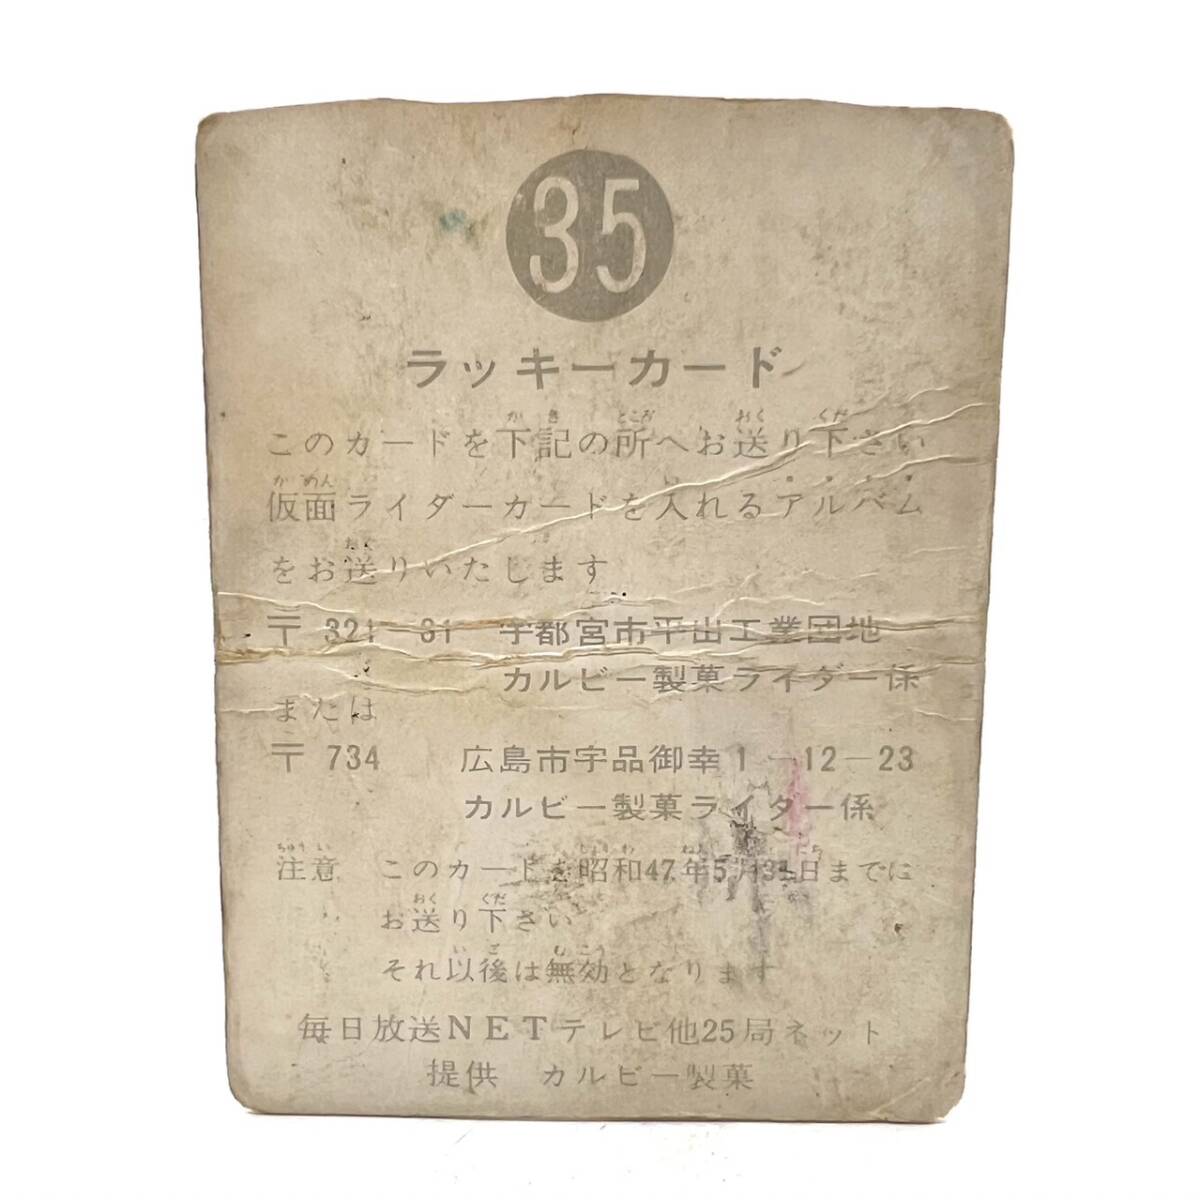 35
ラッキーカード
このカードを下記の所へお送り下さい
仮面ライダーカードを入れるアルバム
をお送りいたします
〒 321-31 宇都宮市平出工業団地
カルビー製菓ライダー係
または
〒 734 広島市宇品御幸1-12-23
カルビー製菓ライダー係
注意 このカードを昭和47年5月31日までに
お送り下さい
それ以後は無効となります
毎日放送NETテレビ他25局ネット
提供 カルビー製菓